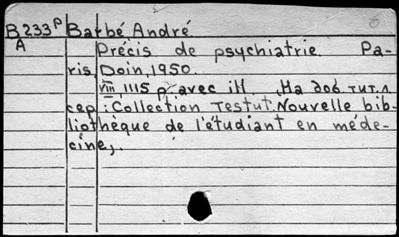 B233ᵖ Barbé André 6
A Précis de psychiatrie Pa-
ris, Doin, 1950.
VIII, 1115 p. avec ill. На доб. тит. л.
сер.: Collection Testut. Nouvelle bib-
liothèque de l'étudiant en méde-
cine,.